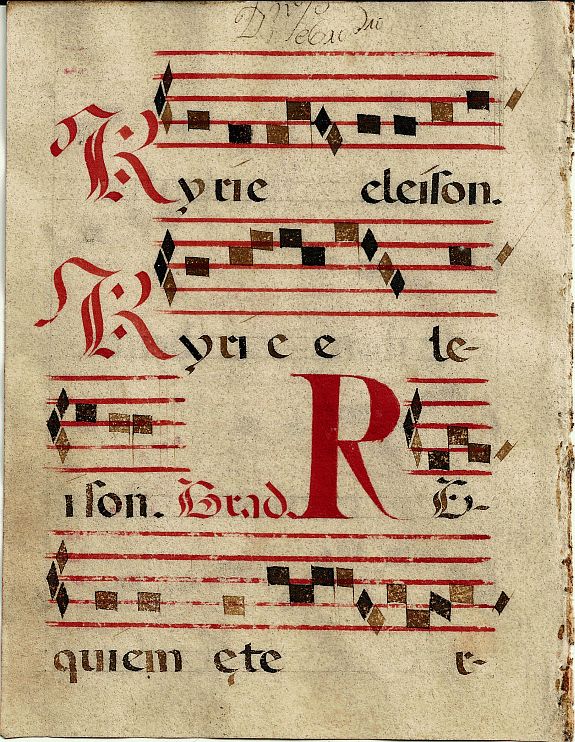 Kyrie eleiſon.
Kyrie e le-
iſon. Grad. R E-
quiem ęte r-